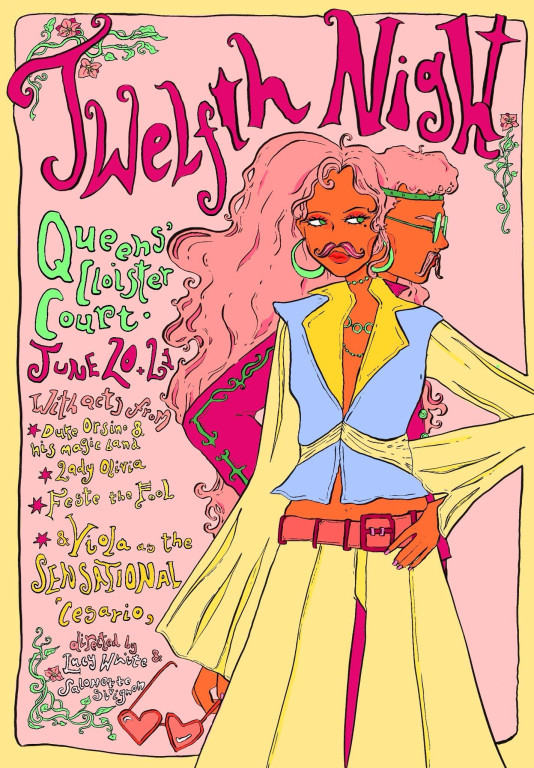 Twelfth Night
Queens'
Cloister
Court.
June 20 + 21
With acts from
Duke Orsino &
his magic band
Lady Olivia
Feste the Fool
& Viola as the
SENSATIONAL
'Cesario'
directed by
Lucy White &
Salomette